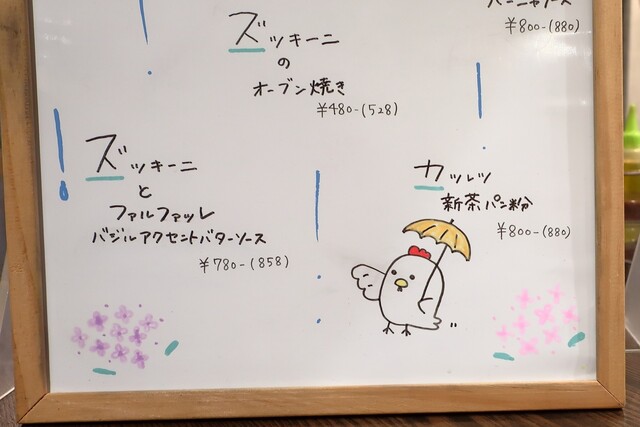 ズッキーニ
の
オーブン焼き
¥480-(528)
¥800-(880)
ズッキーニ
と
ファルファッレ
バジルアクセントバターソース
¥780-(858)
カツレツ
新茶パン粉
¥800-(880)